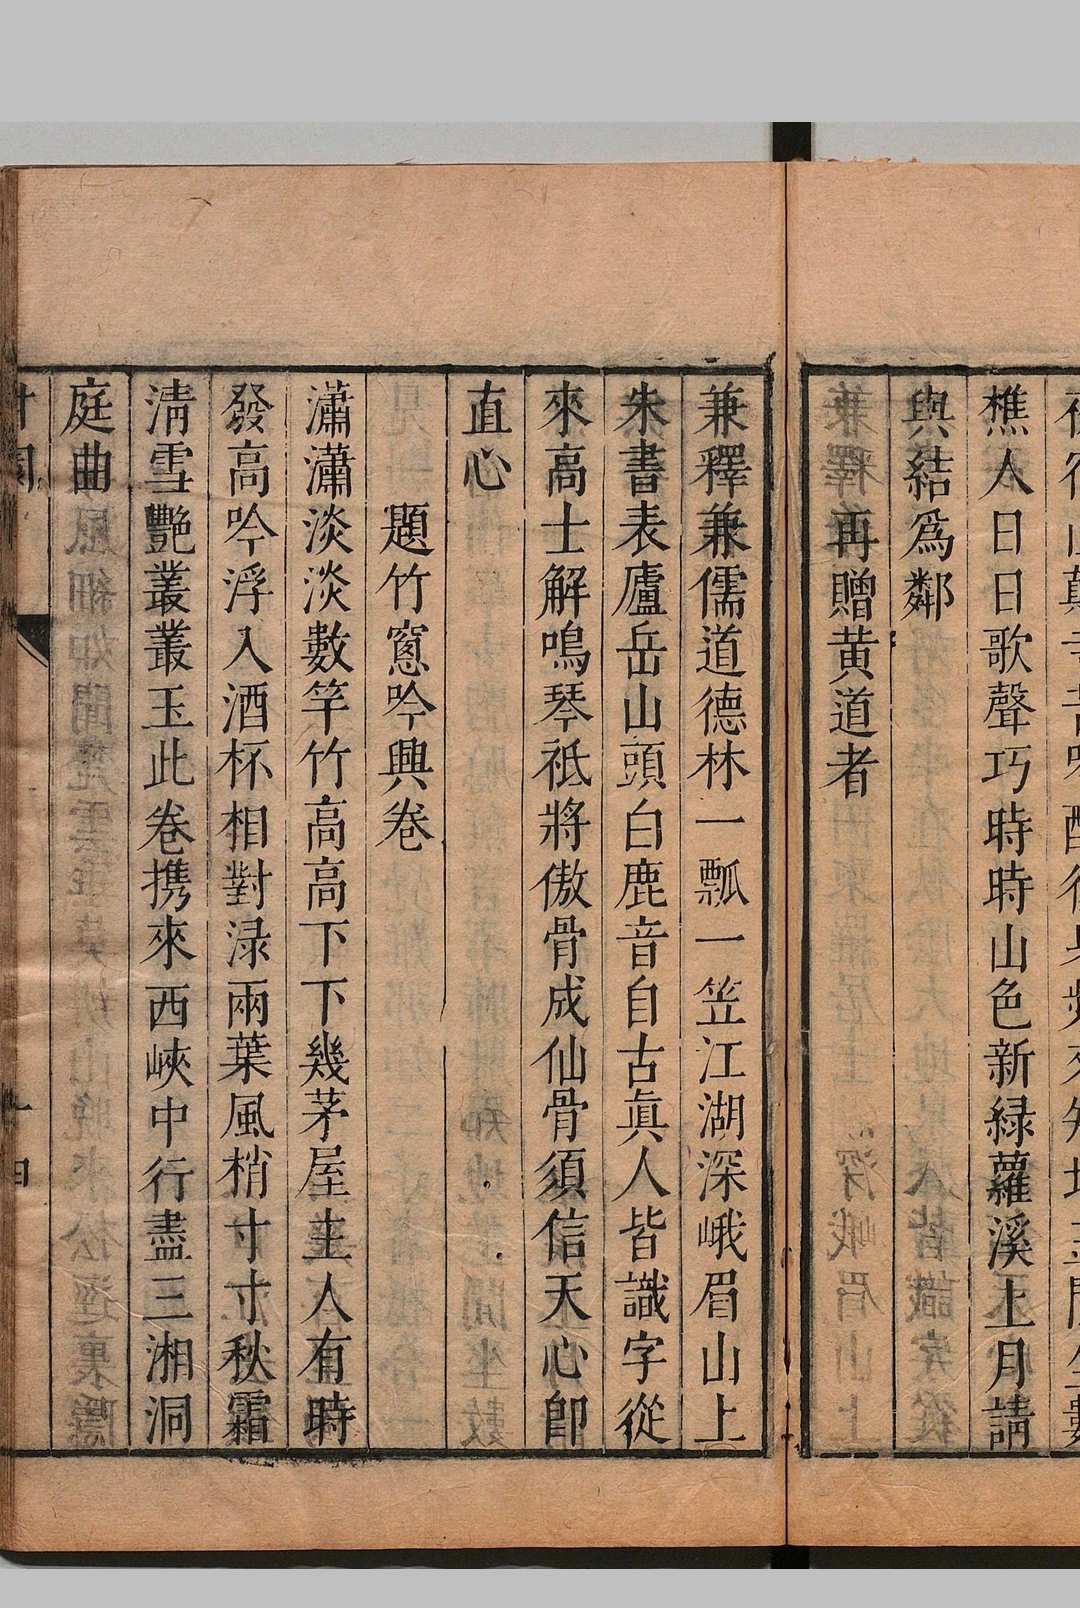 樵人日日歌聲巧時時山色新緑蘿溪上月請
與結爲鄰
再贈黄道者
兼釋兼儒道德林一瓢一笠江湖深峨眉山上
朱書表廬岳山頭白鹿音自古眞人皆識字從
來高士解鳴琴祗將傲骨成仙骨須信天心卽
直心
題竹窻吟興卷
瀟瀟淡淡數竿竹高高下下幾茅屋主人有時
發高吟浮入酒杯相對渌兩葉風梢寸寸秋霜
淸雪艷叢叢玉此卷携來西峽中行盡三湘洞
庭曲